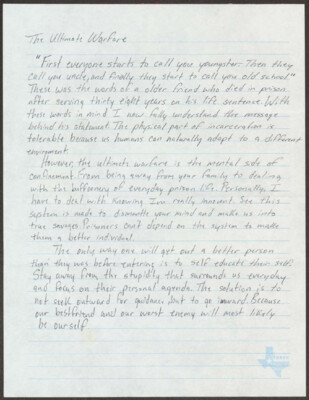 The Ultimate Warfare
"First everyone starts to call you youngster. Then they
call you uncle, and finally they start to call you old school."
These was the words of a older friend who died in prison
after serving thirty eight years on his life sentence. With
these words in mind I now fully understand the message
behind his statement. The physical part of incarceration is
tolerable because us humans can naturally adapt to a different
However, the ultimate warfare is the mental side of
confinement. From being away from your family to dealing
with the of everyday prison life. Personally, I
have to deal with knowing I'm really innocent. See this
system is made to dismantle your mind and make us into
true savages. Prisoners can't depend on the system to make
them a better individual.
The only way one will get out a better person
than they was before entering is to self educate their self.
Stay away from the stupidity that surrounds us everyday
and focus on their personal agenda. The solution is to
not seek outward for guidance but to go inward. Because
our bestfriend and our worst enemy will most likely
be ourself